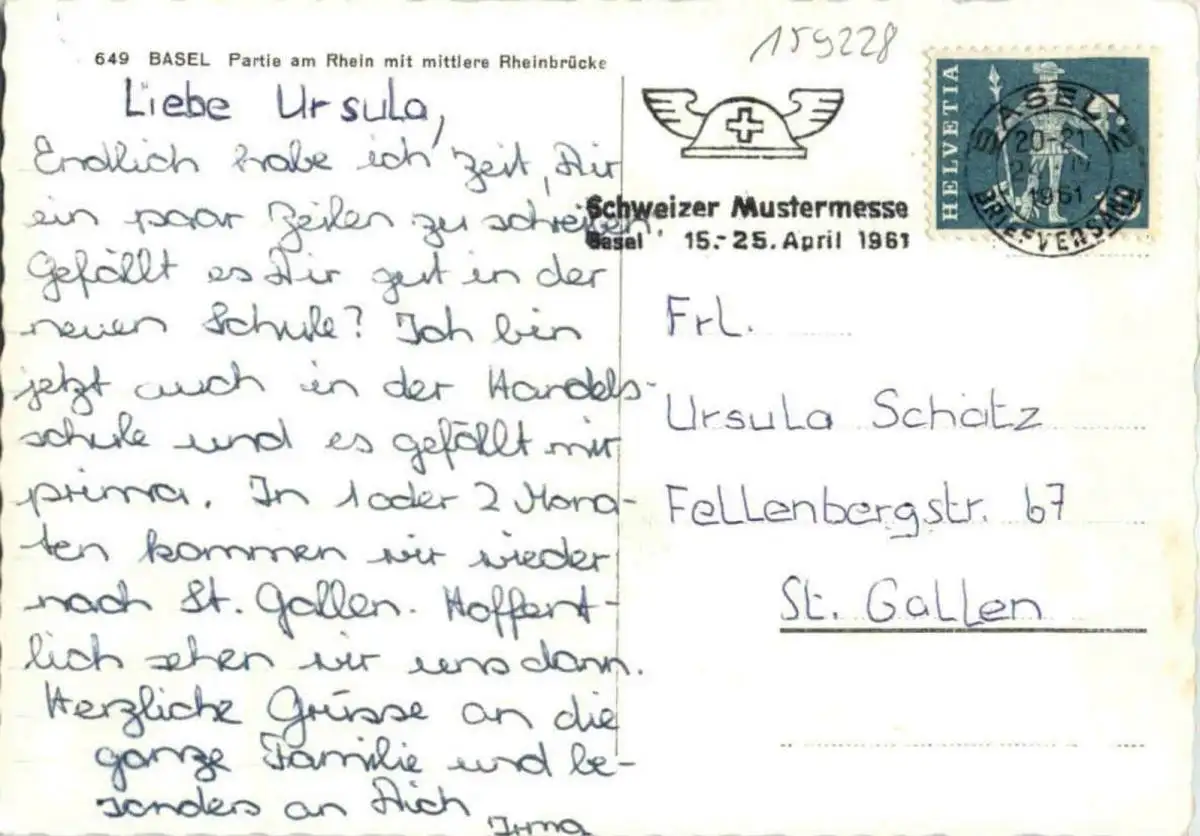 649 BASEL Partie am Rhein mit mittlere Rheinbrücke
Liebe Ursula,
Endlich habe ich Zeit, Dir
ein paar Zeilen zu schreiben.
Gefällt es Dir gut in der
neuen Schule? Ich bin
jetzt auch in der Handels-
schule und es gefällt mir
prima. In 1 oder 2 Mona-
ten kommen wir wieder
nach St. Gallen. Hoffent-
lich sehen wir uns dann.
Herzliche Grüsse an die
ganze Familie und be-
sonders an Dich
Irma
159228
Schweizer Mustermesse
Basel 15.-25. April 1961
HELVETIA
BASEL 2
20-21
1961
BRIEFVERSAND
Frl.
Ursula Schatz
Fellenbergstr. 67
St. Gallen